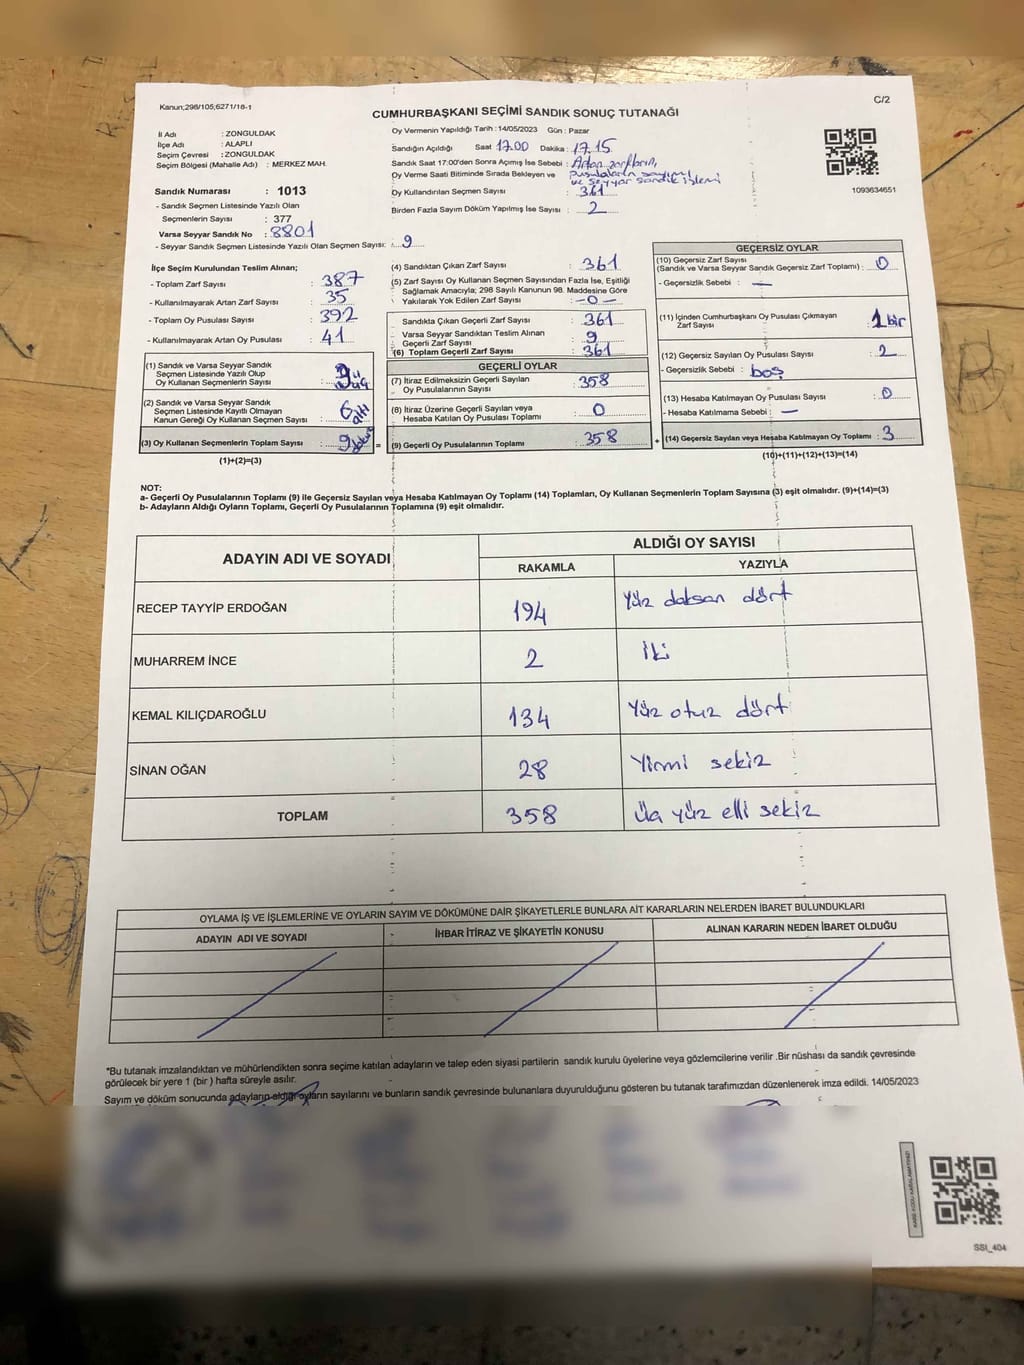 Kanun;298/105;6271/18-1
C/2
CUMHURBAŞKANI SEÇİMİ SANDIK SONUÇ TUTANAĞI
İl Adı : ZONGULDAK
İlçe Adı : ALAPLI
Seçim Çevresi : ZONGULDAK
Seçim Bölgesi (Mahalle Adı) : MERKEZ MAH.
Sandık Numarası : 1013
- Sandık Seçmen Listesinde Yazılı Olan
Seçmenlerin Sayısı : 377
Varsa Seyyar Sandık No : 8801
- Seyyar Sandık Seçmen Listesinde Yazılı Olan Seçmen Sayısı: 9
Oy Vermenin Yapıldığı Tarih :14/05/2023 Gün : Pazar
Sandığın Açıldığı Saat 17.00 Dakika : 17.15
Sandık Saat 17:00'den Sonra Açımış İse Sebebi : Artan zarfların,
pusulaların sayımı
ve seyyar sandık işlemi
Oy Verme Saati Bitiminde Sırada Bekleyen ve
Oy Kullandırılan Seçmen Sayısı : 361
Birden Fazla Sayım Döküm Yapılmış İse Sayısı : 2
1093634651
İlçe Seçim Kurulundan Teslim Alınan;
- Toplam Zarf Sayısı : 387
- Kullanılmayarak Artan Zarf Sayısı : 35
- Toplam Oy Pusulası Sayısı : 392
- Kullanılmayarak Artan Oy Pusulası : 41
(1) Sandık ve Varsa Seyyar Sandık
Seçmen Listesinde Yazılı Olup
Oy Kullanan Seçmenlerin Sayısı : üç
(2) Sandık ve Varsa Seyyar Sandık
Seçmen Listesinde Kayıtlı Olmayan
Kanun Gereği Oy Kullanan Seçmen Sayısı : 6 altı
(3) Oy Kullanan Seçmenlerin Toplam Sayısı : 9
(1)+(2)=(3)
(4) Sandıktan Çıkan Zarf Sayısı : 361
(5) Zarf Sayısı Oy Kullanan Seçmen Sayısından Fazla İse, Eşitliği
Sağlamak Amacıyla; 298 Sayılı Kanunun 98. Maddesine Göre
Yakılarak Yok Edilen Zarf Sayısı : -0-
Sandıkta Çıkan Geçerli Zarf Sayısı : 361
Varsa Seyyar Sandıktan Teslim Alınan
Geçerli Zarf Sayısı : 9
(6) Toplam Geçerli Zarf Sayısı : 361
GEÇERLİ OYLAR
(7) İtiraz Edilmeksizin Geçerli Sayılan
Oy Pusulalarının Sayısı : 358
(8) İtiraz Üzerine Geçerli Sayılan veya
Hesaba Katılan Oy Pusulası Toplamı : 0
= (9) Geçerli Oy Pusulalarının Toplamı : 358
GEÇERSİZ OYLAR
(10) Geçersiz Zarf Sayısı
(Sandık ve Varsa Seyyar Sandık Geçersiz Zarf Toplamı) : 0
- Geçersizlik Sebebi : —
(11) İçinden Cumhurbaşkanı Oy Pusulası Çıkmayan
Zarf Sayısı : 1 bir
(12) Geçersiz Sayılan Oy Pusulası Sayısı : 2
- Geçersizlik Sebebi : boş
(13) Hesaba Katılmayan Oy Pusulası Sayısı : 0
- Hesaba Katılmama Sebebi : —
+ (14) Geçersiz Sayılan veya Hesaba Katılmayan Oy Toplamı : 3
(10)+(11)+(12)+(13)=(14)
NOT:
a- Geçerli Oy Pusulalarının Toplamı (9) ile Geçersiz Sayılan veya Hesaba Katılmayan Oy Toplamı (14) Toplamları, Oy Kullanan Seçmenlerin Toplam Sayısına (3) eşit olmalıdır. (9)+(14)=(3)
b- Adayların Aldığı Oyların Toplamı, Geçerli Oy Pusulalarının Toplamına (9) eşit olmalıdır.
ADAYIN ADI VE SOYADI ALDIĞI OY SAYISI
RAKAMLA YAZIYLA
RECEP TAYYİP ERDOĞAN 194 Yüz doksan dört
MUHARREM İNCE 2 İki
KEMAL KILIÇDAROĞLU 134 Yüz otuz dört
SİNAN OĞAN 28 Yirmi sekiz
TOPLAM 358 Üç yüz elli sekiz
OYLAMA İŞ VE İŞLEMLERİNE VE OYLARIN SAYIM VE DÖKÜMÜNE DAİR ŞİKAYETLERLE BUNLARA AİT KARARLARIN NELERDEN İBARET BULUNDUKLARI
ADAYIN ADI VE SOYADI İHBAR İTİRAZ VE ŞİKAYETİN KONUSU ALINAN KARARIN NEDEN İBARET OLDUĞU
*Bu tutanak imzalandıktan ve mühürlendikten sonra seçime katılan adayların ve talep eden siyasi partilerin sandık kurulu üyelerine veya gözlemcilerine verilir .Bir nüshası da sandık çevresinde
görülecek bir yere 1 (bir ) hafta süreyle asılır.
Sayım ve döküm sonucunda adayların aldığı oyların sayılarını ve bunların sandık çevresinde bulunanlara duyurulduğunu gösteren bu tutanak tarafımızdan düzenlenerek imza edildi. 14/05/2023
KARE KODU KARALAMAYINIZ!
SSI_404